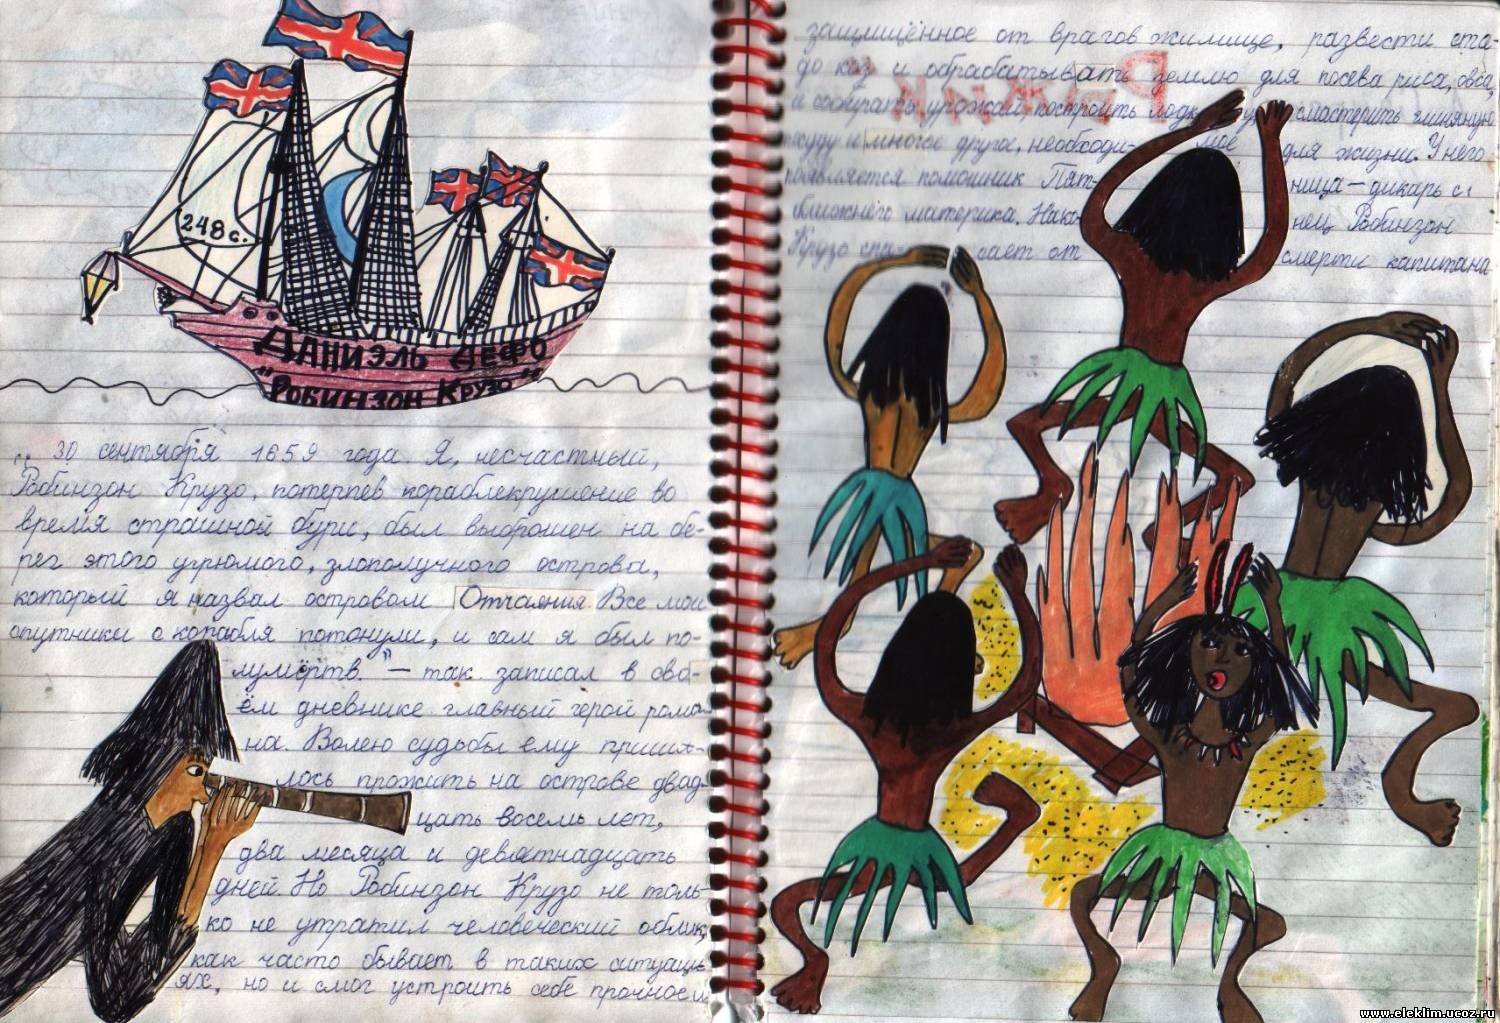 248 с.
ДАНИЭЛЬ ДЕФО
"РОБИНЗОН КРУЗО"
„ 30 сентября 1659 года. Я, несчастный,
Робинзон Крузо, потерпев кораблекрушение во
время страшной бури, был выброшен на бе-
рег этого угрюмого, злополучного острова,
который я назвал островом Отчаяния. Все мои
спутники с корабля потонули, и сам я был по-
лумёртв." – так записал в сво-
ём дневнике главный герой рома-
на. Волею судьбы ему приш-
лось прожить на острове двад-
цать восемь лет,
два месяца и девятнадцать
дней. Но Робинзон Крузо не толь-
ко не утратил человеческий облик,
как часто бывает в таких ситуаци-
ях, но и смог устроить себе прочное и
защищённое от врагов жилище, развести ста-
до коз и обрабатывать землю для посева риса, овса,
и собирать урожай, построить лодку, смастерить глиняную
посуду и многое другое, необходимое для жизни. У него
появляется помошник Пятница – дикарь с
ближнего материка. Наконец Робинзон
Крузо спасает от смерти капитана
www.eleklim.ucoz.ru